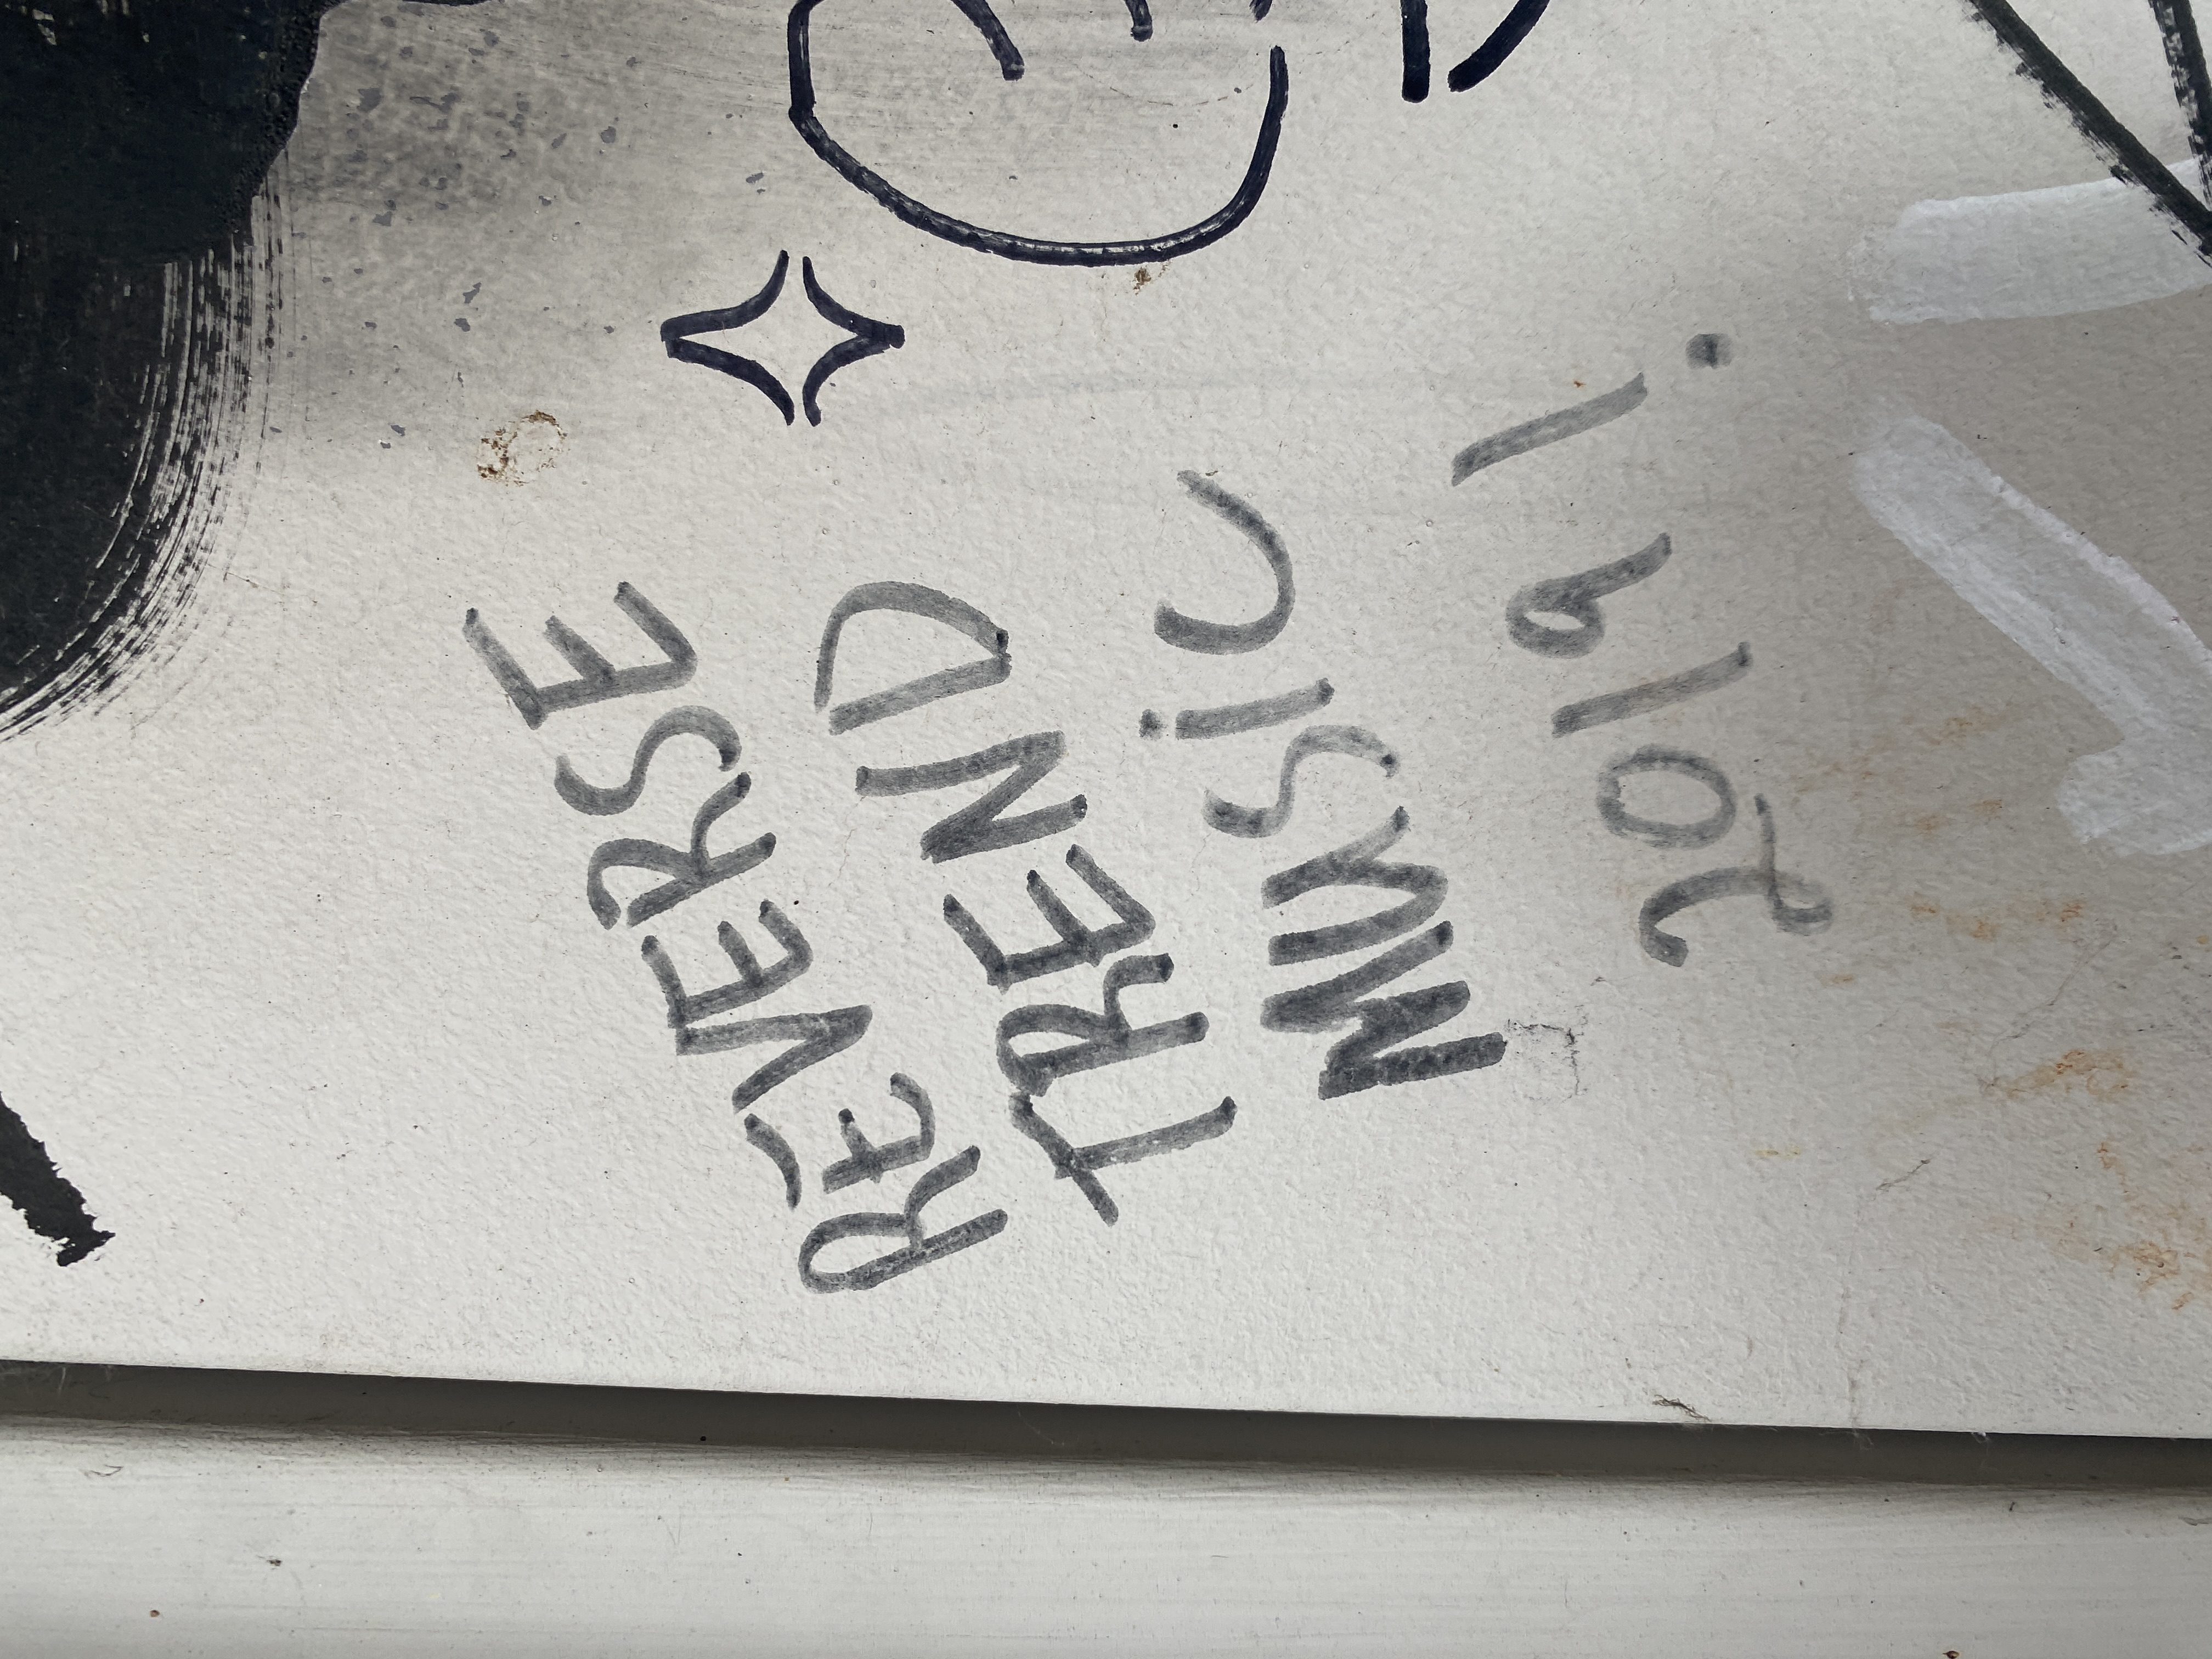 REVERSE
TREND
MUSiC
2019!